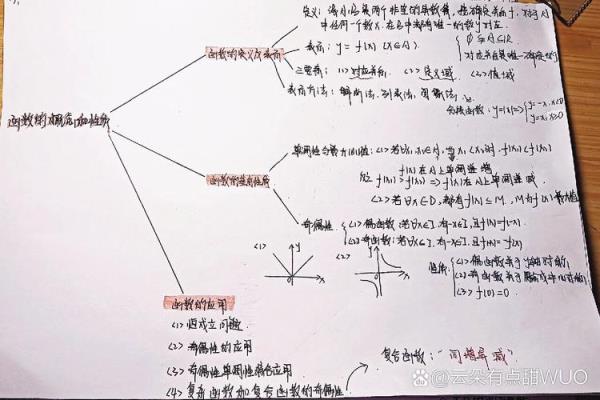 函数的概念和性质
函数的定义及表示
定义：设A，B是两个非空的实数集，在确定关系f，对于A
中任何一个数x，在B中都有唯一的数y对应。
表示：y=f(x) (x∈A)
对应关系是唯一确定的
三要素：<1>对应关系 <2>定义域 <3>值域
表示方法：解析法、列表法、图象法
分段函数：y=|x|=> { y=-x, x<0
y=x, x≥0
函数的基本性质
单调性与最大(小)值：<1>若∀x₁,x₂∈A，当x₁<x₂时，f(x₁)<f(x₂)
f(x)在A上单调递增
f(x₁)>f(x₂) => f(x)在A上单调递减
<2>若∀x∈D，都有f(x)≤M，M为f(x)最大值
奇偶性 { <1>偶函数：若∀x∈I，有-x∈I，且f(x)=f(-x)
<2>奇函数：若∀x∈I，有-x∈I，且f(-x)=-f(x)
<1> y x
<2> y x
性质： { <1>偶函数关于y轴对称
<2>奇函数关于原点成中心对称
<3>f(0)=0
函数的应用
<1>恒成立问题
<2>奇偶性的应用
<3>奇偶性单调性综合应用
<4>复杂函数和复合函数的奇偶性
复合函数：“同增异减”
@云朵有点甜WUO